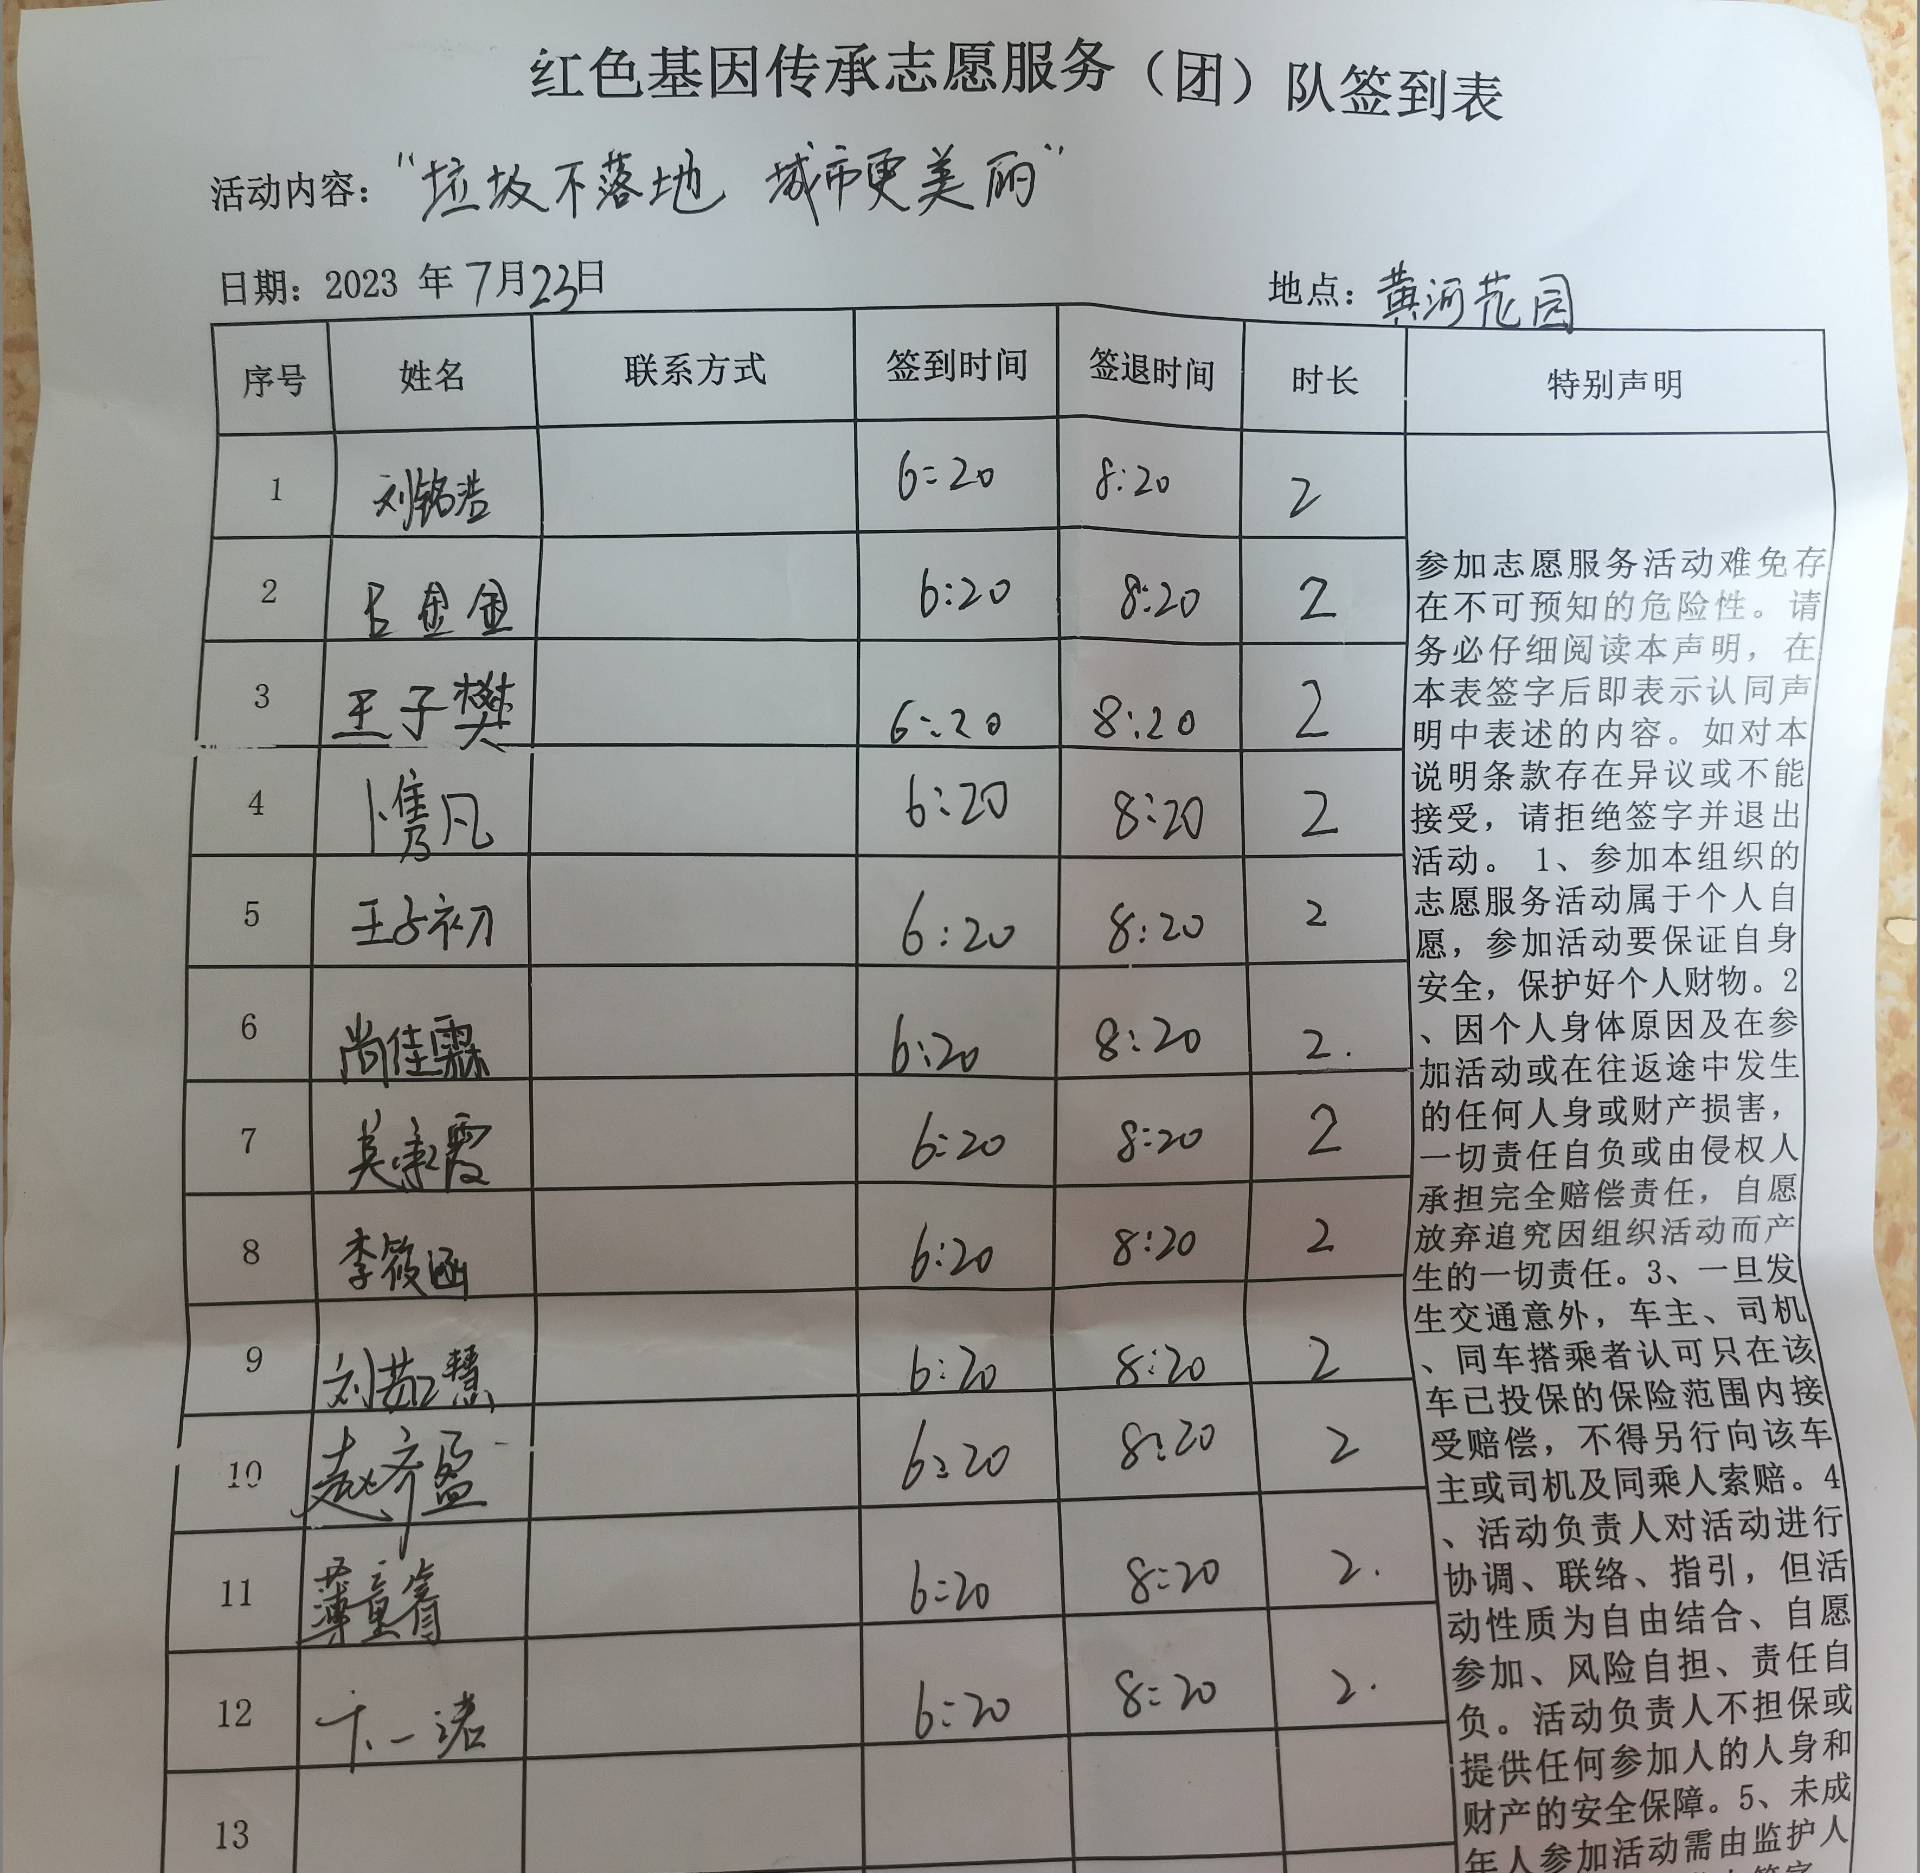 红色基因传承志愿服务（团）队签到表
活动内容：“垃圾不落地 城市更美丽”
日期：2023 年 7月23日 地点：黄河花园
序号 姓名 联系方式 签到时间 签退时间 时长 特别声明
1 刘铭浩 6:20 8:20 2
2 吕金金 6:20 8:20 2
3 王子樊 6:20 8:20 2
4 卜隽凡 6:20 8:20 2
5 王子初 6:20 8:20 2
6 尚佳霖 6:20 8:20 2.
7 吴承霞 6:20 8:20 2
8 李筱涵 6:20 8:20 2
9 刘茹慧 6:20 8:20 2
10 赵齐盈 6:20 8:20 2
11 薄童睿 6:20 8:20 2.
12 卞一诺 6:20 8:20 2.
13
参加志愿服务活动难免存
在不可预知的危险性。请
务必仔细阅读本声明，在
本表签字后即表示认同声
明中表述的内容。如对本
说明条款存在异议或不能
接受，请拒绝签字并退出
活动。 1、参加本组织的
志愿服务活动属于个人自
愿，参加活动要保证自身
安全，保护好个人财物。2
、因个人身体原因及在参
加活动或在往返途中发生
的任何人身或财产损害，
一切责任自负或由侵权人
承担完全赔偿责任，自愿
放弃追究因组织活动而产
生的一切责任。3、一旦发
生交通意外，车主、司机
、同车搭乘者认可只在该
车已投保的保险范围内接
受赔偿，不得另行向该车
主或司机及同乘人索赔。4
、活动负责人对活动进行
协调、联络、指引，但活
动性质为自由结合、自愿
参加、风险自担、责任自
负。活动负责人不担保或
提供任何参加人的人身和
财产的安全保障。5、未成
年人参加活动需由监护人